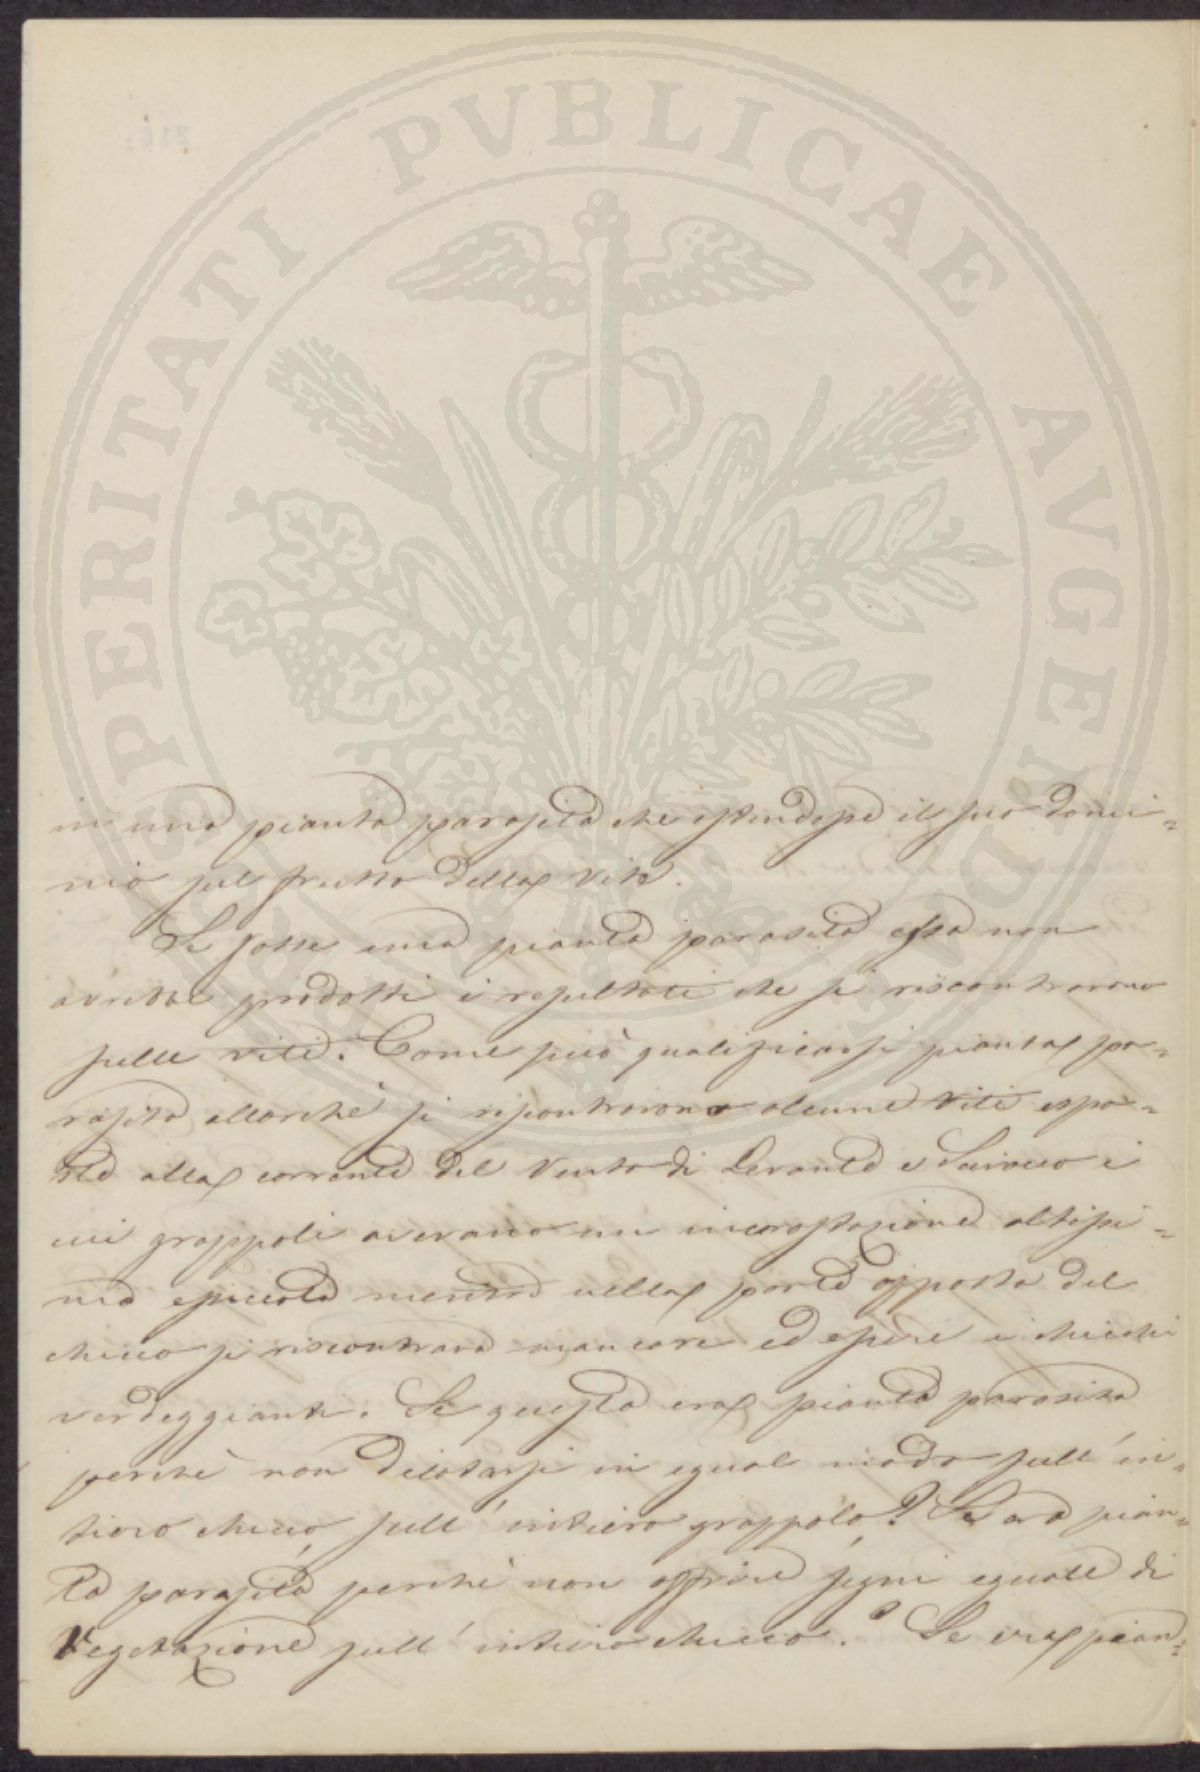 PROSPERITATI PVBLICAE AVGENDAE
in una pianta parasita che estendesse il suo domi=
nio sul frutto della vite.
Se fosse una pianta parasita essa non
avrebbe prodotti i resultati che si riscontrarono
sulle viti. Come può qualificarsi pianta pa=
rasita allorché si riscontrarono alcune viti espo=
ste alla corrente del Vento di Levante e Scirocco i
cui grappoli avevano un incrostazione altissi=
ma e piccola mentre nella parte opposta del
chicco si riscontrava mancare ed essere i chicchi
verdeggianti. Se questa era pianta parasita
perchè non dilatarsi in egual modo sull' in=
tiero chicco, sull' intiero grappolo? Se era pian=
ta parasita perchè non offrire segni eguali di
Vegetazione sull' intiero chicco? Se era pian=